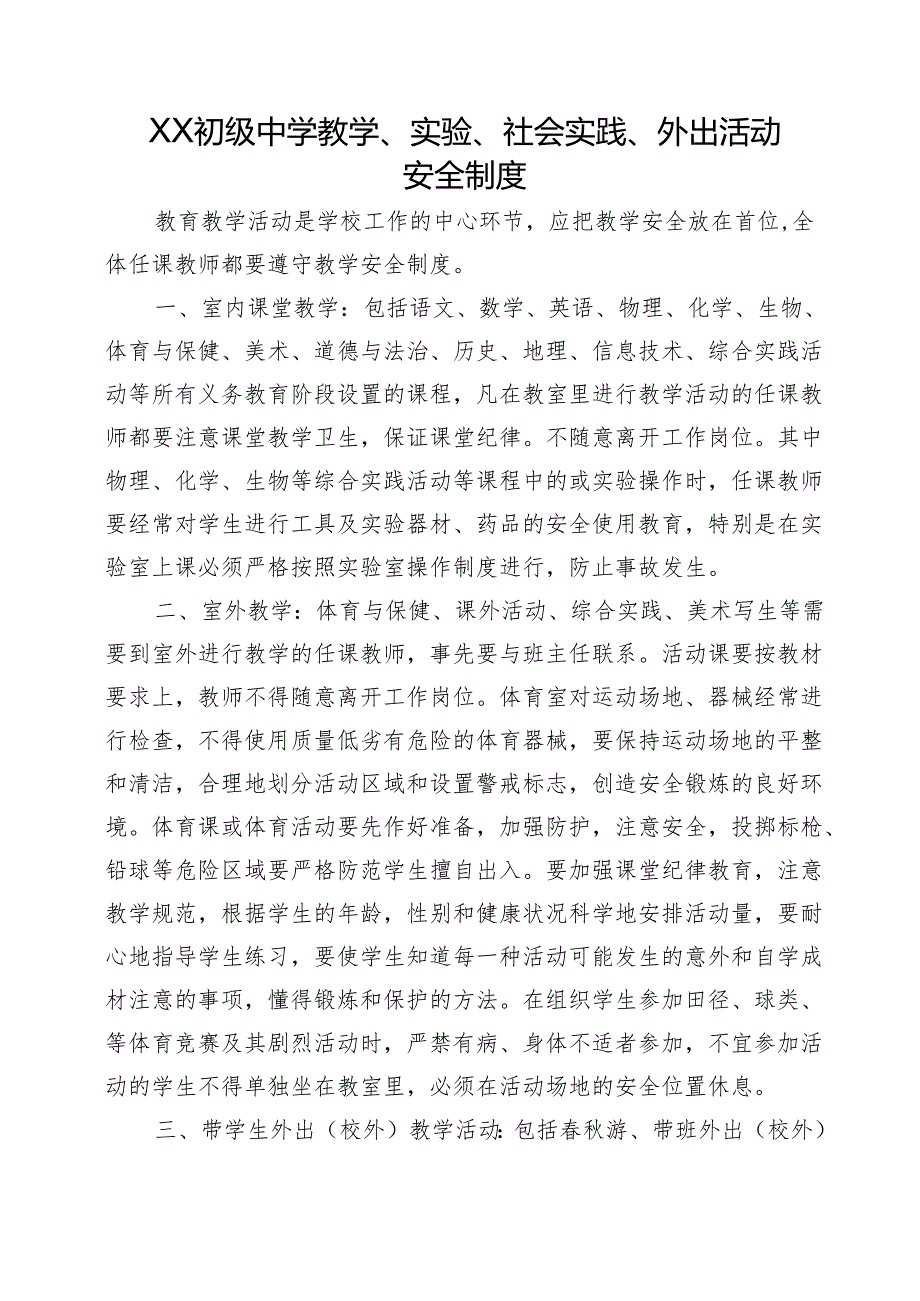 XX初级中学教学、实验、社会实践、外出活动
安全制度
教育教学活动是学校工作的中心环节，应把教学安全放在首位,全
体任课教师都要遵守教学安全制度。
一、室内课堂教学：包括语文、数学、英语、物理、化学、生物、
体育与保健、美术、道德与法治、历史、地理、信息技术、综合实践活
动等所有义务教育阶段设置的课程，凡在教室里进行教学活动的任课教
师都要注意课堂教学卫生，保证课堂纪律。不随意离开工作岗位。其中
物理、化学、生物等综合实践活动等课程中的或实验操作时，任课教师
要经常对学生进行工具及实验器材、药品的安全使用教育，特别是在实
验室上课必须严格按照实验室操作制度进行，防止事故发生。
二、室外教学：体育与保健、课外活动、综合实践、美术写生等需
要到室外进行教学的任课教师，事先要与班主任联系。活动课要按教材
要求上，教师不得随意离开工作岗位。体育室对运动场地、器械经常进
行检查，不得使用质量低劣有危险的体育器械，要保持运动场地的平整
和清洁，合理地划分活动区域和设置警戒标志，创造安全锻炼的良好环
境。体育课或体育活动要先作好准备，加强防护，注意安全，投掷标枪、
铅球等危险区域要严格防范学生擅自出入。要加强课堂纪律教育，注意
教学规范，根据学生的年龄，性别和健康状况科学地安排活动量，要耐
心地指导学生练习，要使学生知道每一种活动可能发生的意外和自学成
材注意的事项，懂得锻炼和保护的方法。在组织学生参加田径、球类、
等体育竞赛及其剧烈活动时，严禁有病、身体不适者参加，不宜参加活
动的学生不得单独坐在教室里，必须在活动场地的安全位置休息。
三、带学生外出（校外）教学活动：包括春秋游、带班外出（校外）